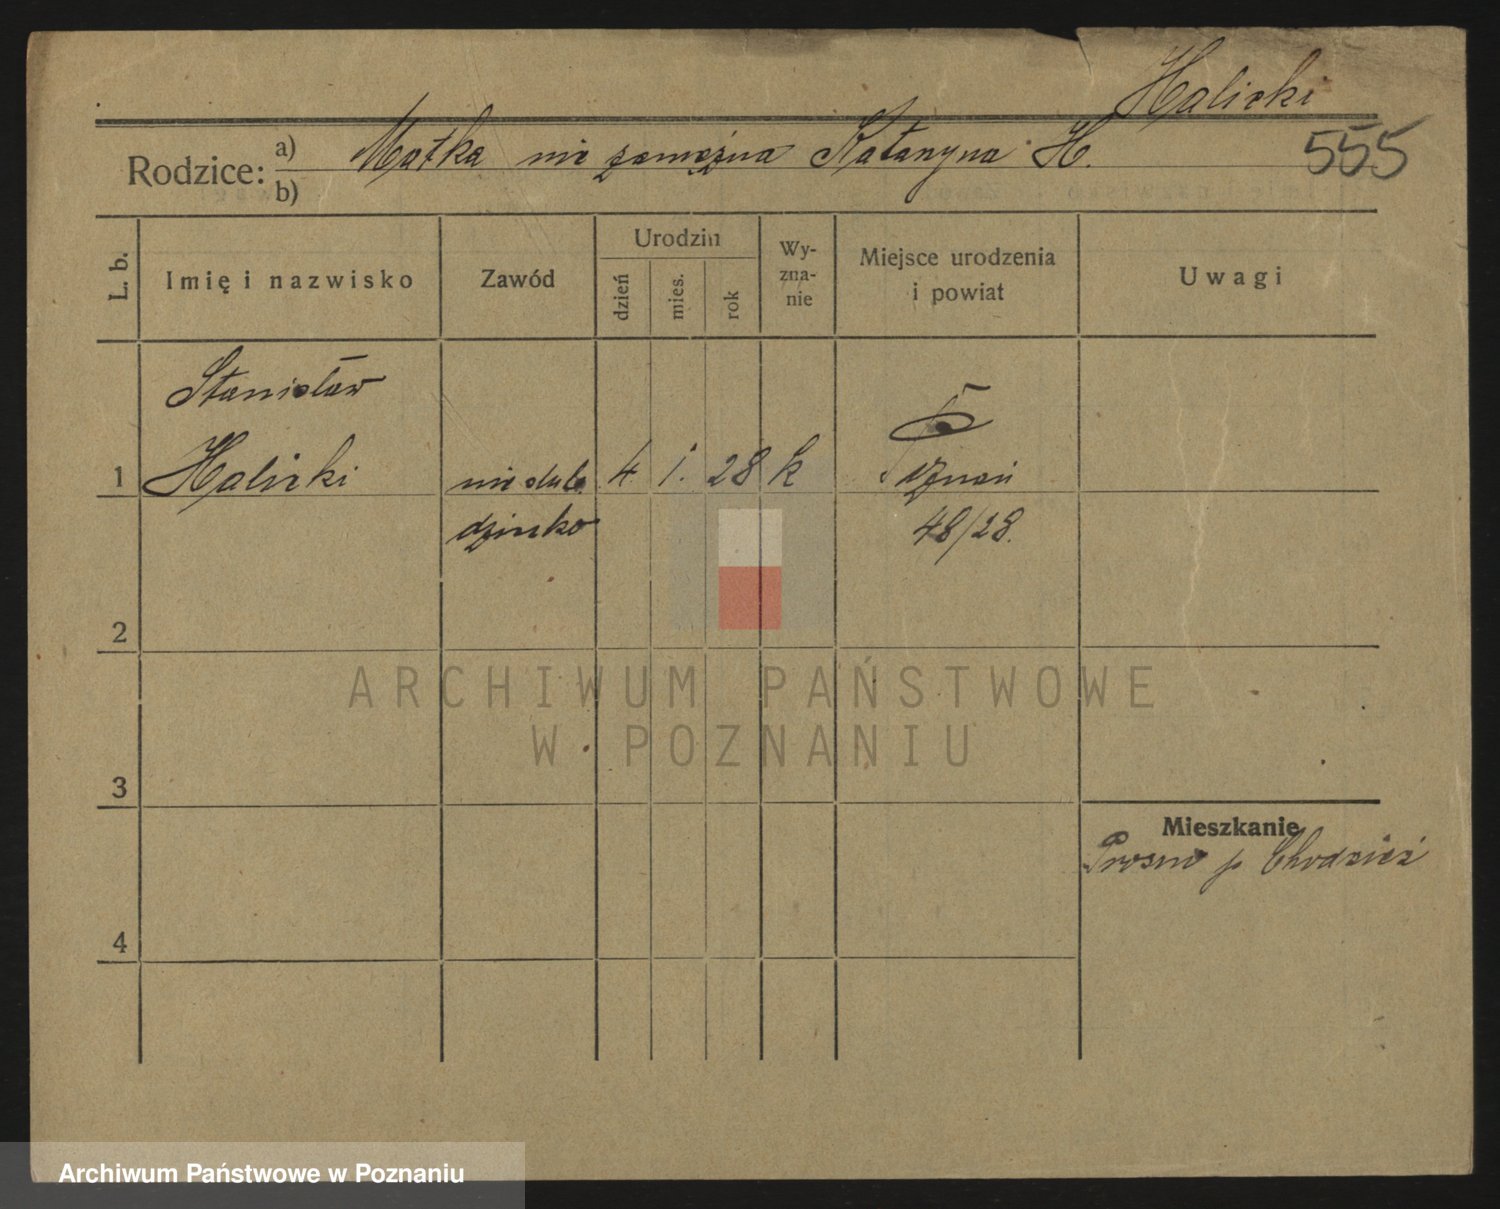 Halicki
Rodzice: a) Matka nie zamężna Katarzyna H.
b)
555
L. b.
Imię i nazwisko
Zawód
Urodzin
dzień
mies.
rok
Wy-
zna-
nie
Miejsce urodzenia
i powiat
Uwagi
Stanisław
1 Halicki nieślub. 4. 1. 28 k Poznań
dziecko 48/28.
2
3
Mieszkanie
Prosna p Chodzież
4
ARCHIWUM PAŃSTWOWE
W POZNANIU
Archiwum Państwowe w Poznaniu